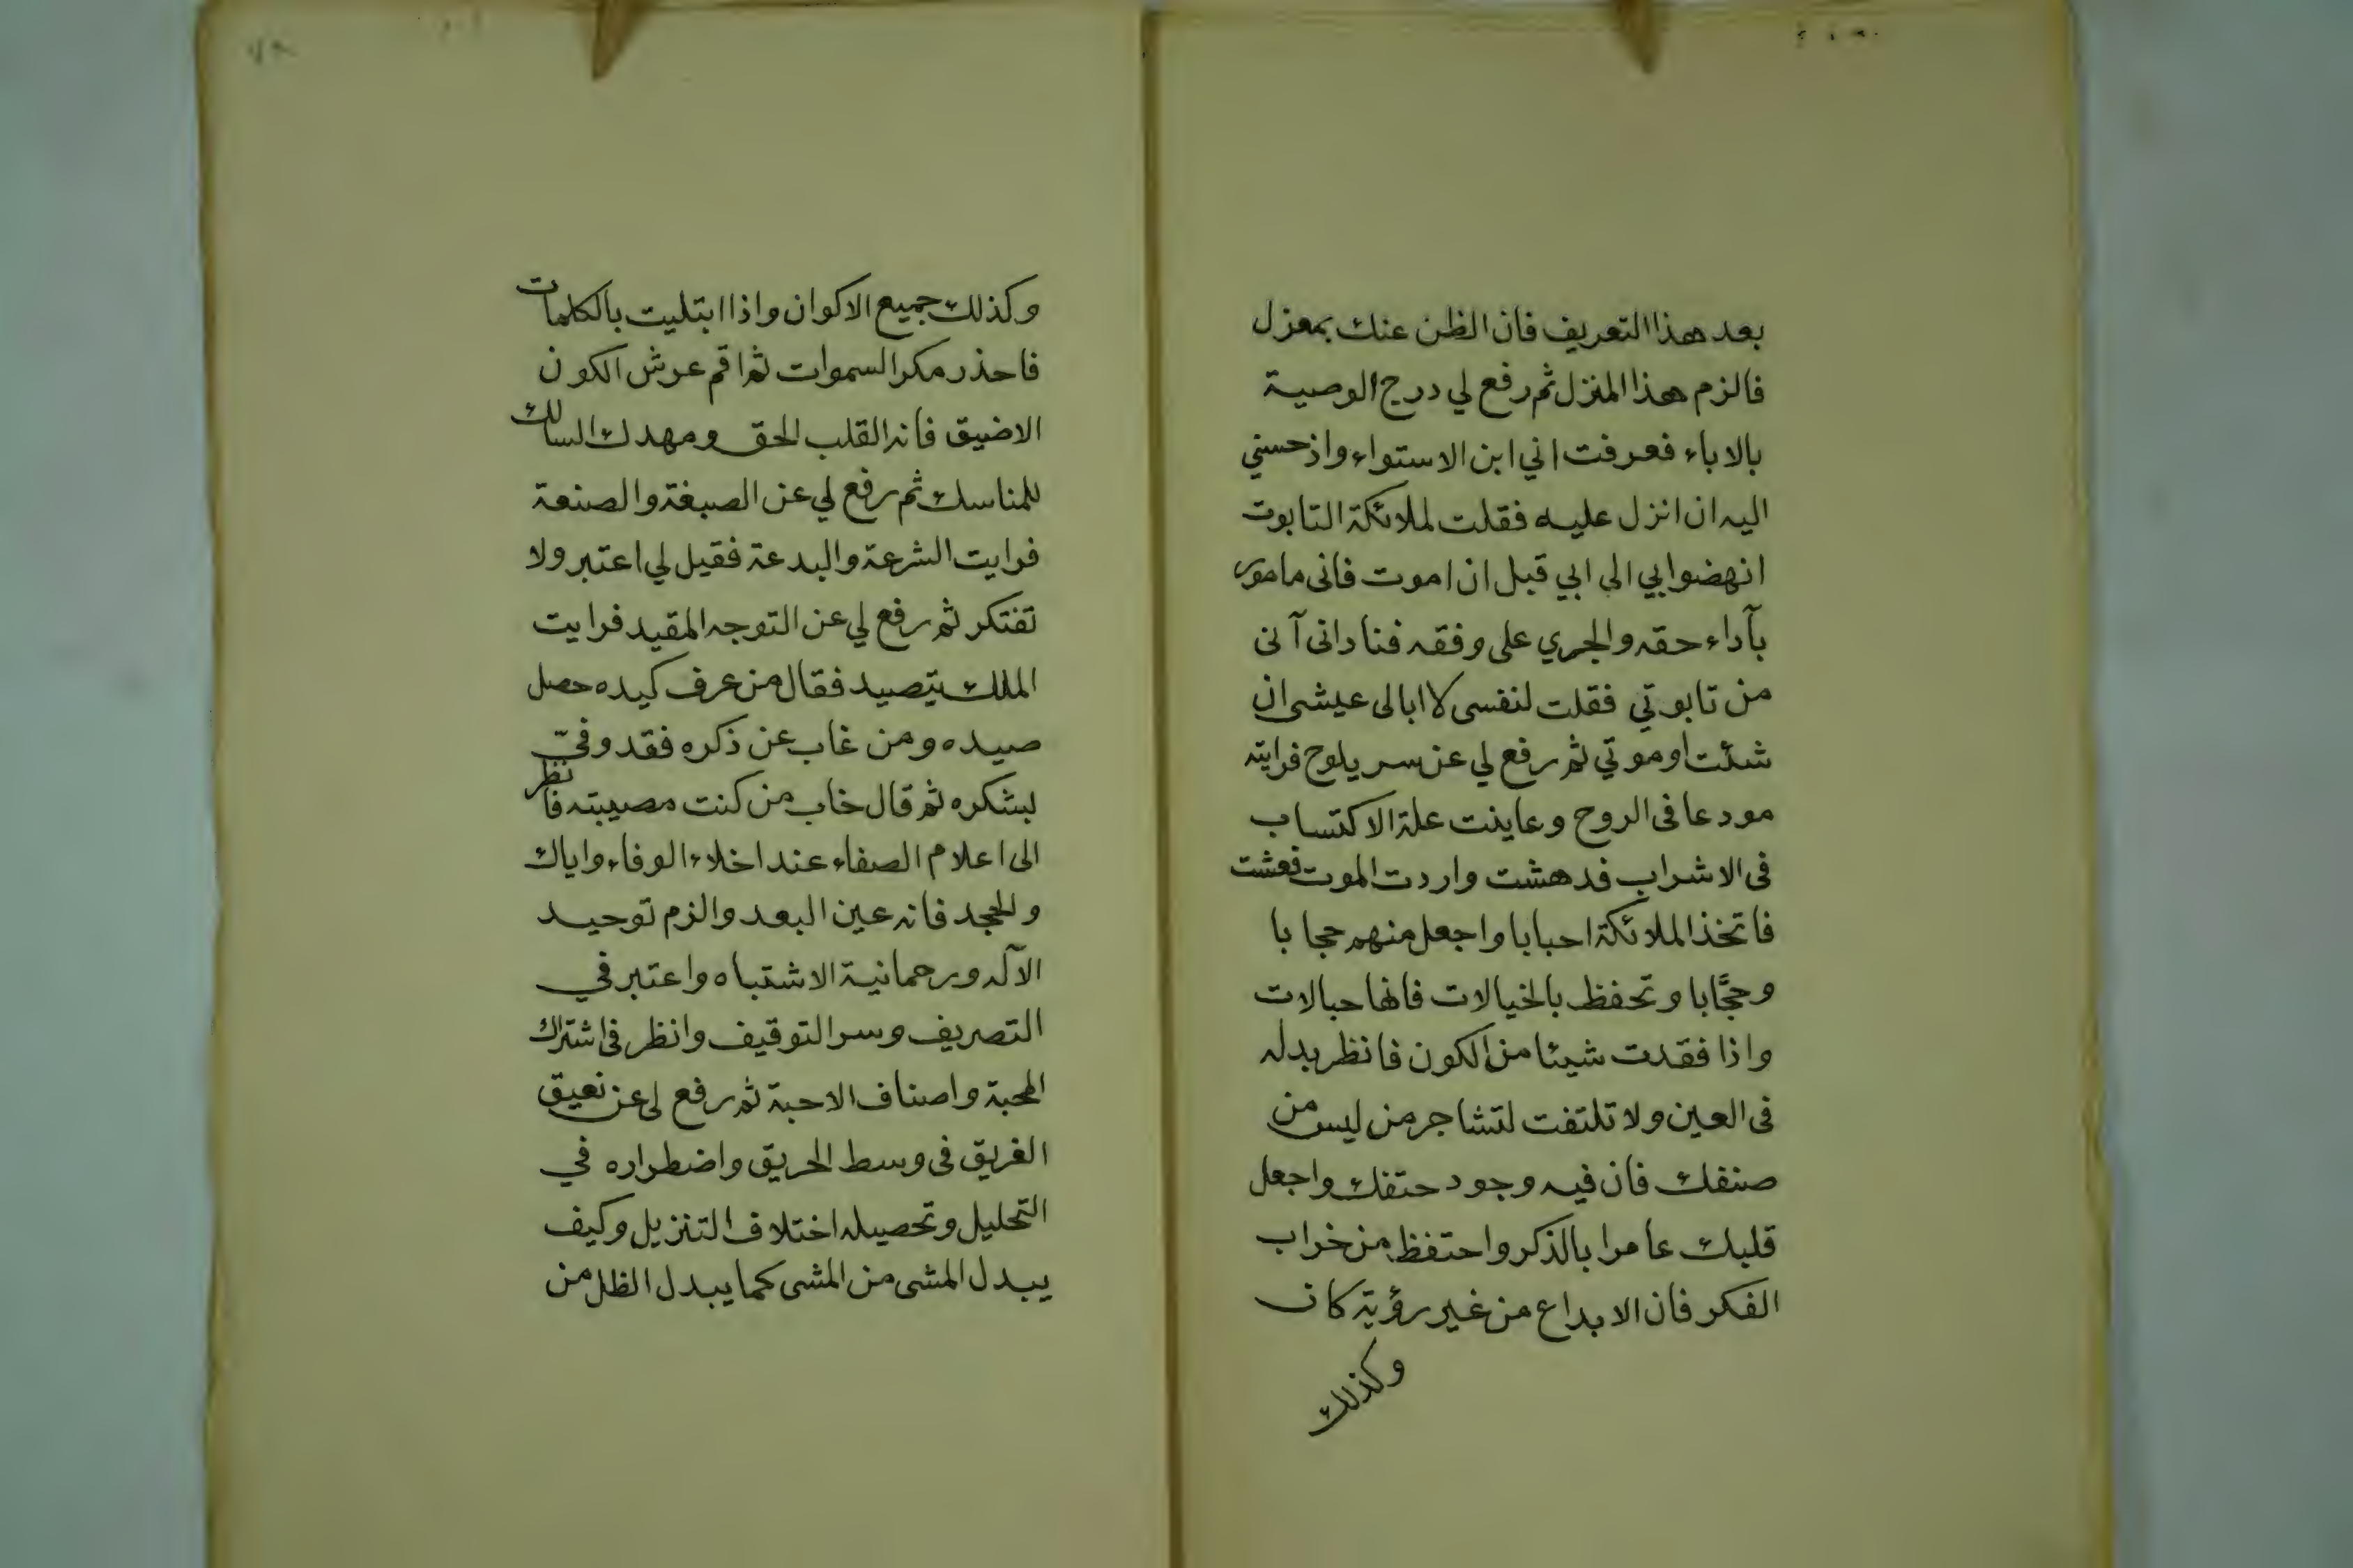 بعد هذا التعريف فان الظن عنك بمعزل
فالزم هذا المنزل ثم رفع لي درج الوصية
بالاباء فعرفت اني ابن الاستواء واذ حسني
اليه ان انزل عليه فقلت لملائكة التابوت
انهضوا بي الى ابي قبل ان اموت فانى مامور
بآداء حقه والجري على وفقه فنادانى آنى
من تابوتي فقلت لنفسى لا ابالى عيشى ان
شئت او موتي ثم رفع لي عن سر يلوح فرايته
مودعا فى الروح وعاينت علة الاكتساب
فى الاشراب فدهشت واردت الموت فعشت
فاتخذ الملائكة احبابا واجعل منهم حجابا
وحجَّابا وتحفظ بالخيالات فانها حبالات
واذا فقدت شيئا من الكون فانظر بدله
فى العين ولا تلتفت لتشاجر من ليس من
صنفك فان فيه وجود حتفك واجعل
قلبك عامرا بالذكر واحتفظ من خراب
الفكر فان الابداع من غير رؤية كان
وكذلك
وكذلك جميع الاكوان واذا ابتليت بالكلمات
فاحذر مكر السموات ثم اقم عرش الكون
الاضيق فانه القلب الحق ومهدك السالك
للمناسك ثم رفع لي عن الصبغة والصنعة
فرايت الشرعة والبدعة فقيل لي اعتبر ولا
تفتكر ثم رفع لي عن التوجه المقيد فرايت
الملك يتصيد فقال من عرف كيده حصل
صيده ومن غاب عن ذكره فقد وفيّ
لبشكره ثم قال خاب من كنت مصيبته فانظر
الى اعلام الصفاء عند اخلاء الوفاء واياك
والجحد فانه عين البعد والزم توحيد
الآله ورحمانية الاشتباه واعتبر في
التصريف وسر التوقيف وانظر فى اشتراك
المحبة واصناف الاحبة ثم رفع لى عن نعيق
الغريق فى وسط الحريق واضطراره في
التحليل وتحصيله اختلاف التنزيل وكيف
يبدل المشى من المشى كما يبدل الظل من